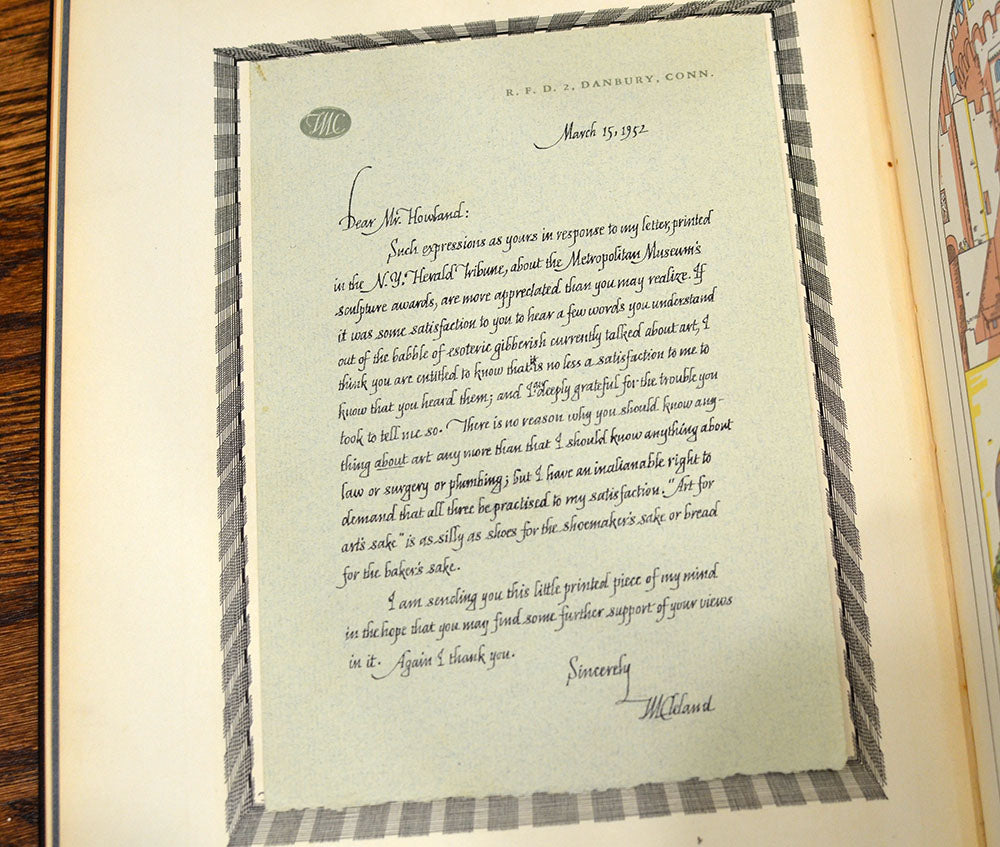 R. F. D. 2, DANBURY, CONN.
TMC
March 15, 1952
Dear Mr. Howland:
Such expressions as yours in response to my letter, printed
in the N.Y. Herald Tribune, about the Metropolitan Museum's
sculpture awards, are more appreciated than you may realize. If
it was some satisfaction to you to hear a few words you understand
out of the babble of esoteric gibberish currently talked about art, I
think you are entitled to know that it is no less a satisfaction to me to
know that you heard them; and I am deeply grateful for the trouble you
took to tell me so. There is no reason why you should know any-
thing about art any more than that I should know anything about
law or surgery or plumbing; but I have an inalianable right to
demand that all three be practised to my satisfaction. "Art for
art's sake" is as silly as shoes for the shoemaker's sake or bread
for the baker's sake.
I am sending you this little printed piece of my mind
in the hope that you may find some further support of your views
in it. Again I thank you.
Sincerely
TMCleland